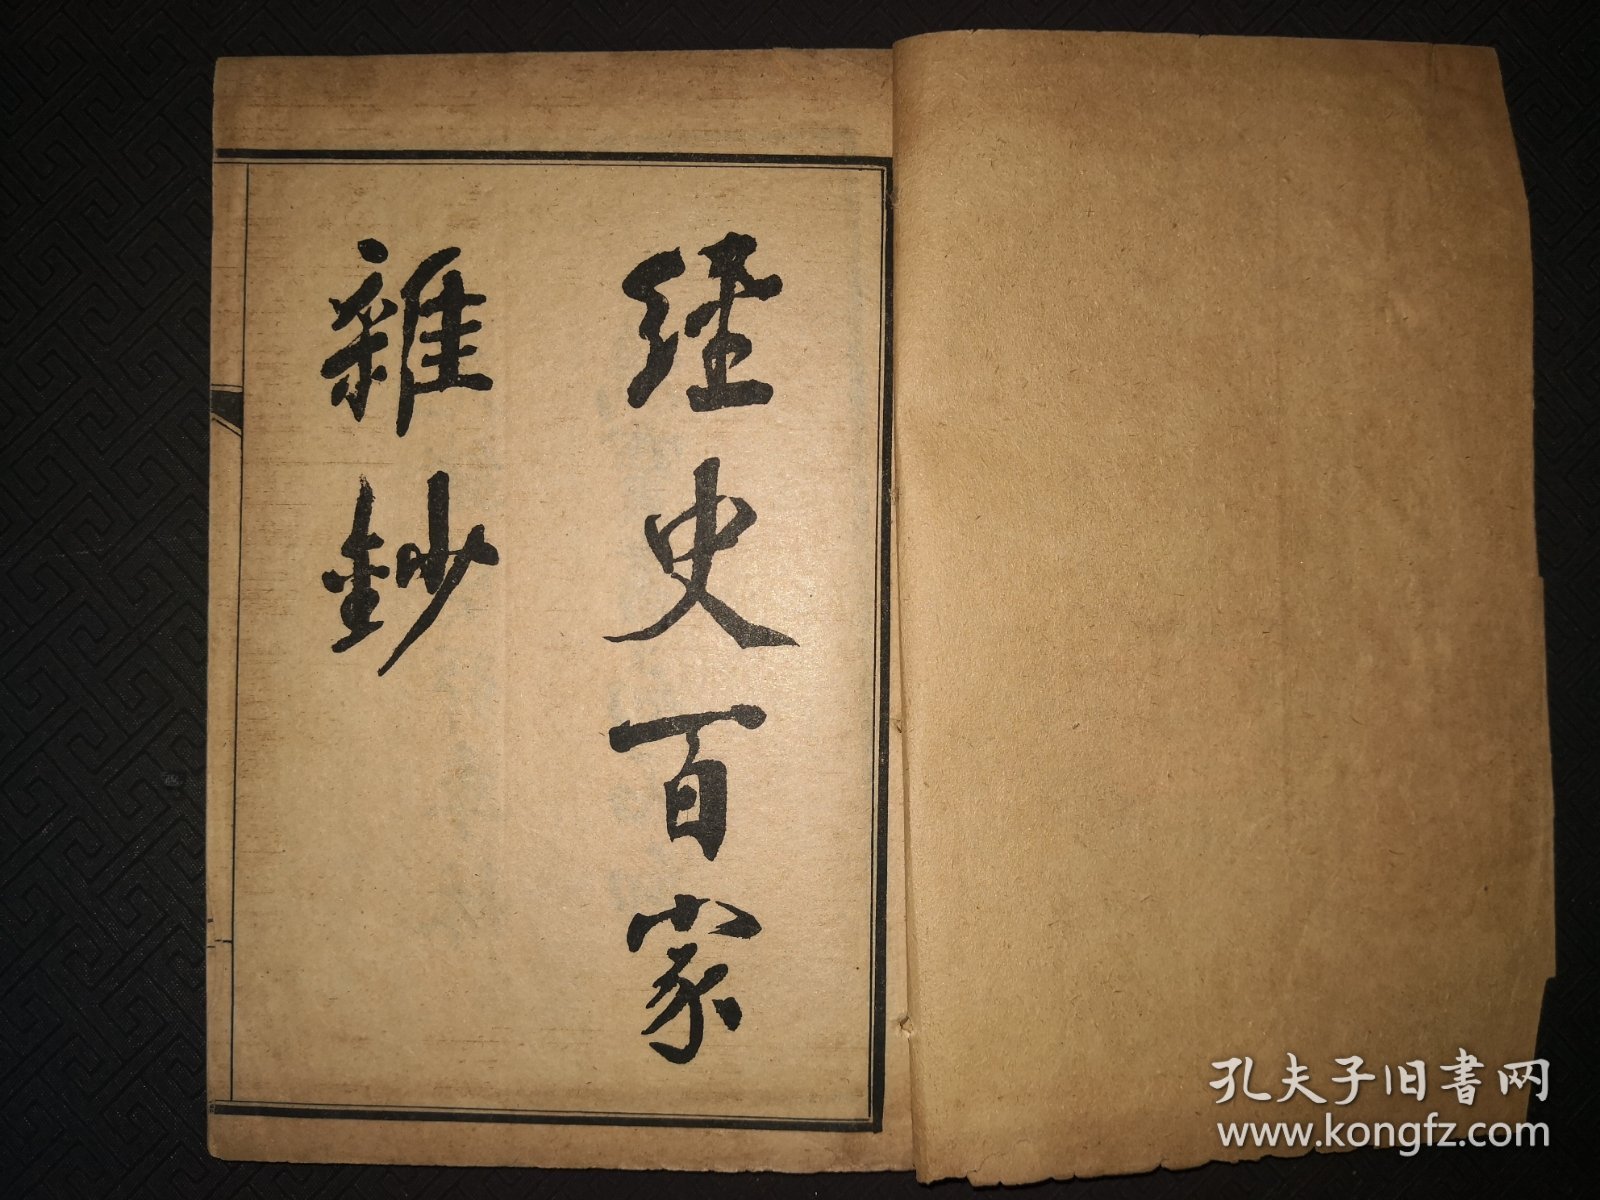 经史百家
雜鈔
孔夫子旧书网
www.kongfz.com